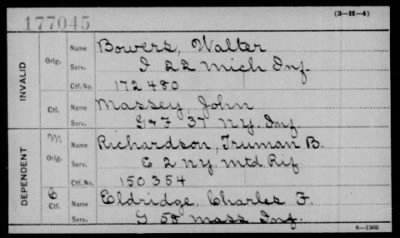 177045
(3-H-4)
INVALID
Orig.
Name Bowers, Walter
Serv. I 22 Mich Inf.
Ctf. No. 172480
Ctf.
Name Massey, John
Serv. G&F 37 N.Y. Inf.
DEPENDENT
M
Orig.
Name Richardson, Truman B.
Serv. C 2 N.Y. Mtd. Rif.
Ctf. No. 150354
C
Ctf.
Name Eldridge, Charles F.
Serv. G 58 Mass Inf.
6-1308